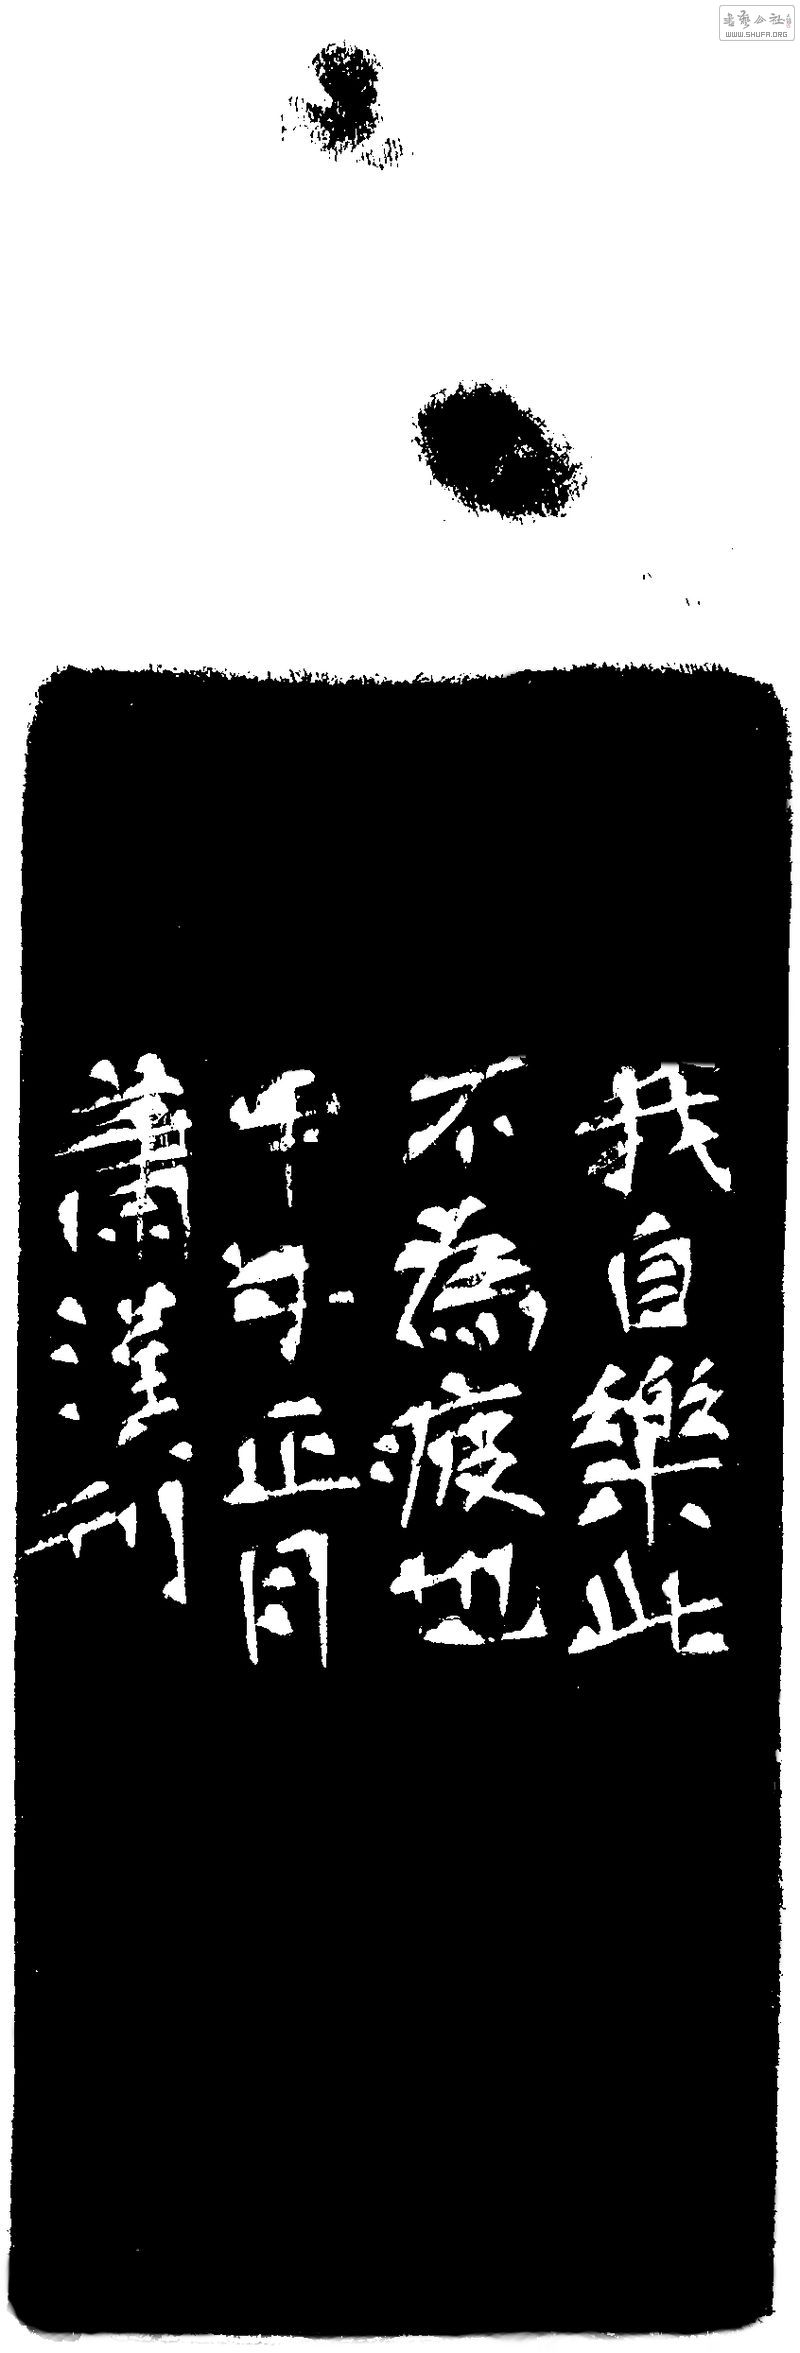 書藝公社
WWW.SHUFA.ORG
我自樂此
不為疲也
午年正月
蕭漢刊